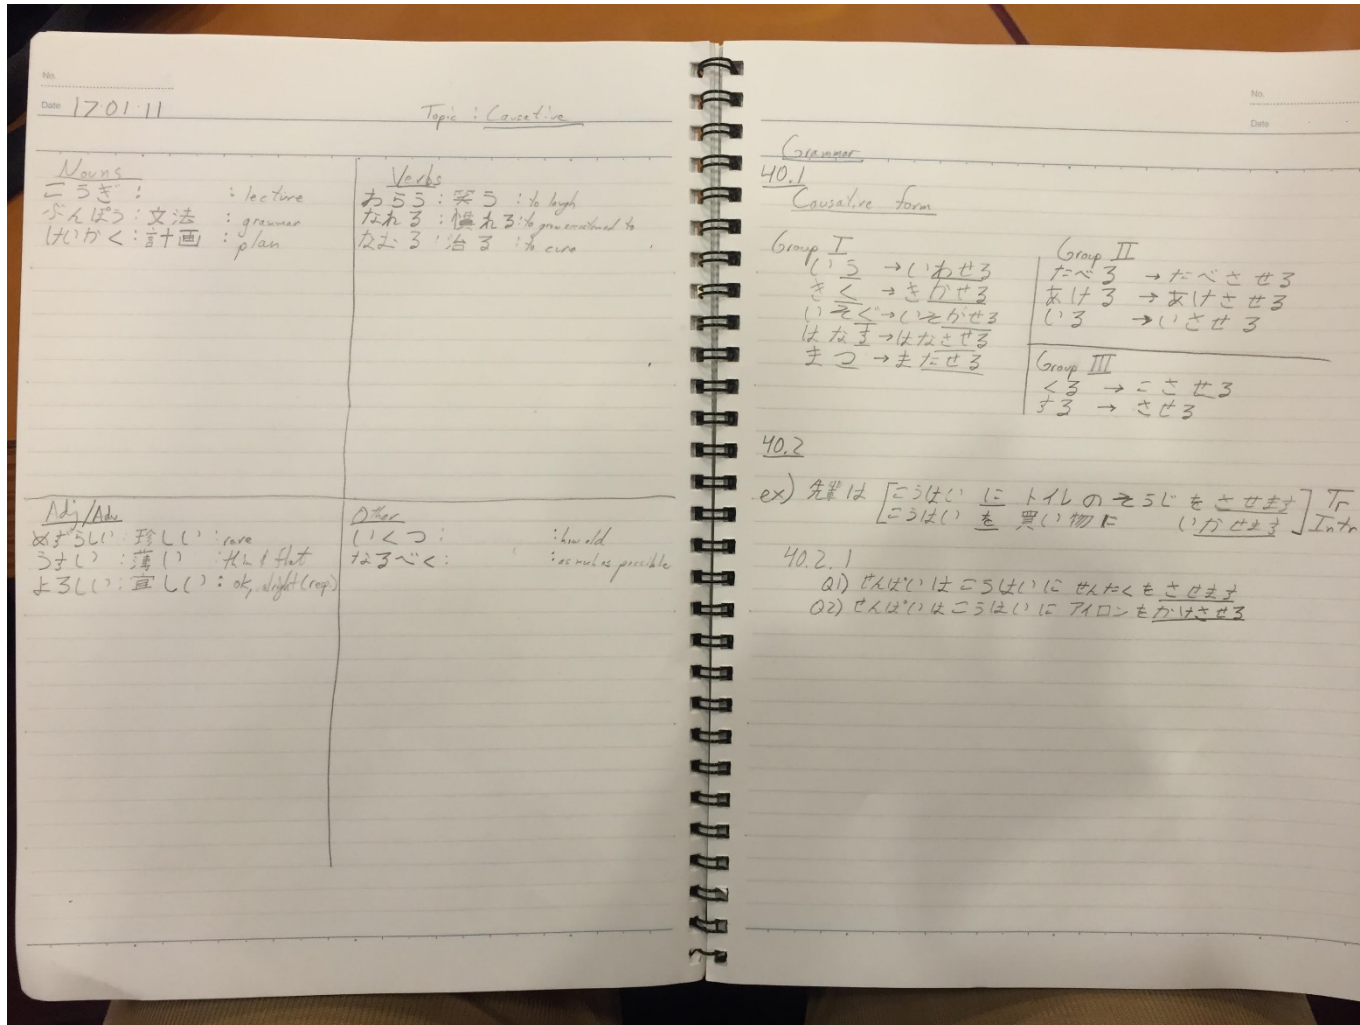 No.
Date 17·01·11
Topic : Causative
Nouns
こうぎ : : lecture
ぶんぽう : 文法 : grammar
けいかく : 計画 : plan
Verbs
わらう : 笑う : to laugh
なれる : 慣れる : to grow accustomed to
なおる : 治る : to cure
Adj/Adv
めずらしい : 珍しい : rare
うすい : 薄い : thin & flat
よろしい : 宜しい : ok, alright (resp)
Other
いくつ : : how old
なるべく : : as much as possible
No.
Date
Grammar
40.1
Causative form
Group I
いう → いわせる
きく → きかせる
いそぐ → いそがせる
はなす → はなさせる
まつ → またせる
Group II
たべる → たべさせる
あける → あけさせる
いる → いさせる
Group III
くる → こさせる
する → させる
40.2
ex) 先輩は [こうはい に トイレのそうじを させます] Tr
[こうはい を 買い物に いかせます] Intr
40.2.1
Q1) せんぱいはこうはいに せんたくを させます
Q2) せんぱいはこうはいに アイロンを かけさせる